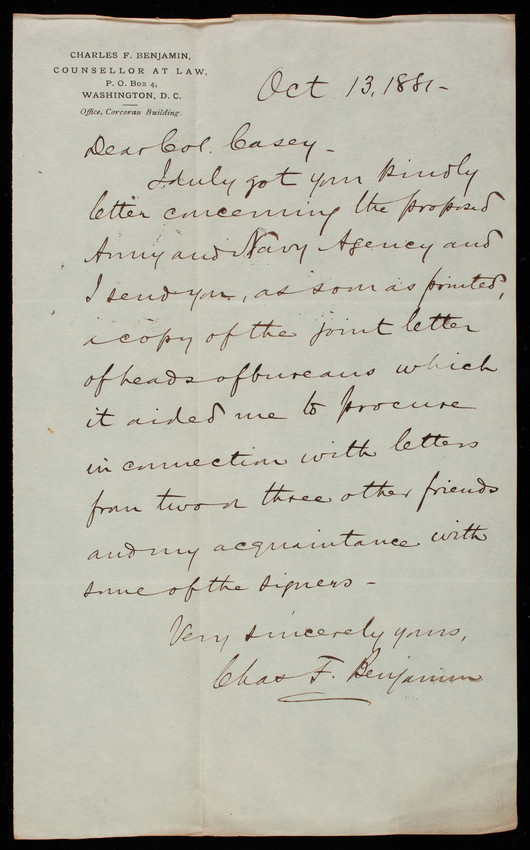 CHARLES F. BENJAMIN,
COUNSELLOR AT LAW,
P. O. Box 4,
WASHINGTON, D. C.
Office, Corcoran Building.
Oct 13, 1881-
Dear Col. Casey -
I duly got your kindly
letter concerning the proposed
Army and Navy Agency and
I send you, as soon as printed,
a copy of the joint letter
of heads of bureaus which
it aided me to procure
in connection with letters
from two or three other friends
and my acquaintance with
some of the signers -
Very sincerely yours,
Chas F. Benjamin